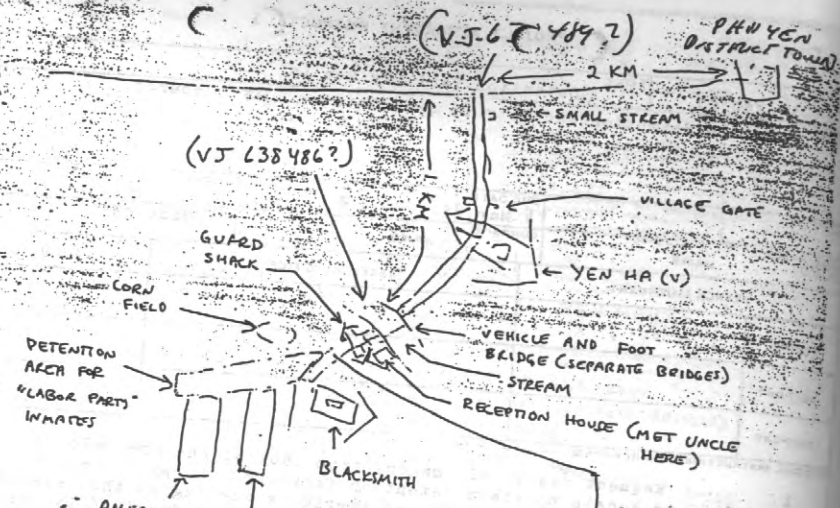 (VJ 6 489?)
PHU YEN
DISTRICT TOWN
2 KM
← SMALL STREAM
(VJ 638486?)
1 KM
VILLAGE GATE
GUARD
SHACK
YEN HA (V)
CORN
FIELD
VEHICLE AND FOOT
BRIDGE (SEPARATE BRIDGES)
DETENTION
AREA FOR
"LABOR PARTY"
INMATES
STREAM
RECEPTION HOUSE (MET UNCLE
HERE)
BLACKSMITH